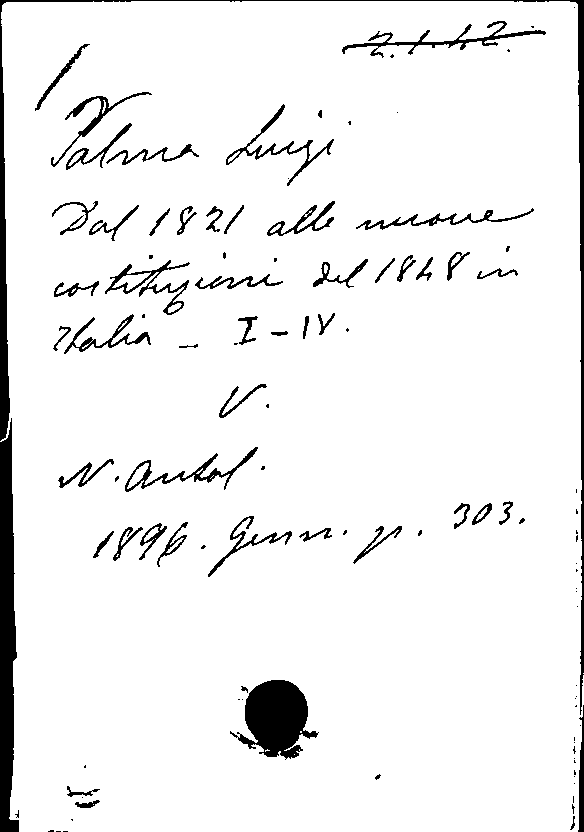 2.1.42.
Palma Luigi
Dal 1821 alle nuove
costituzioni del 1848 in
Italia - I-IV.
V.
N. Antol.
1896. Genn. p. 303.